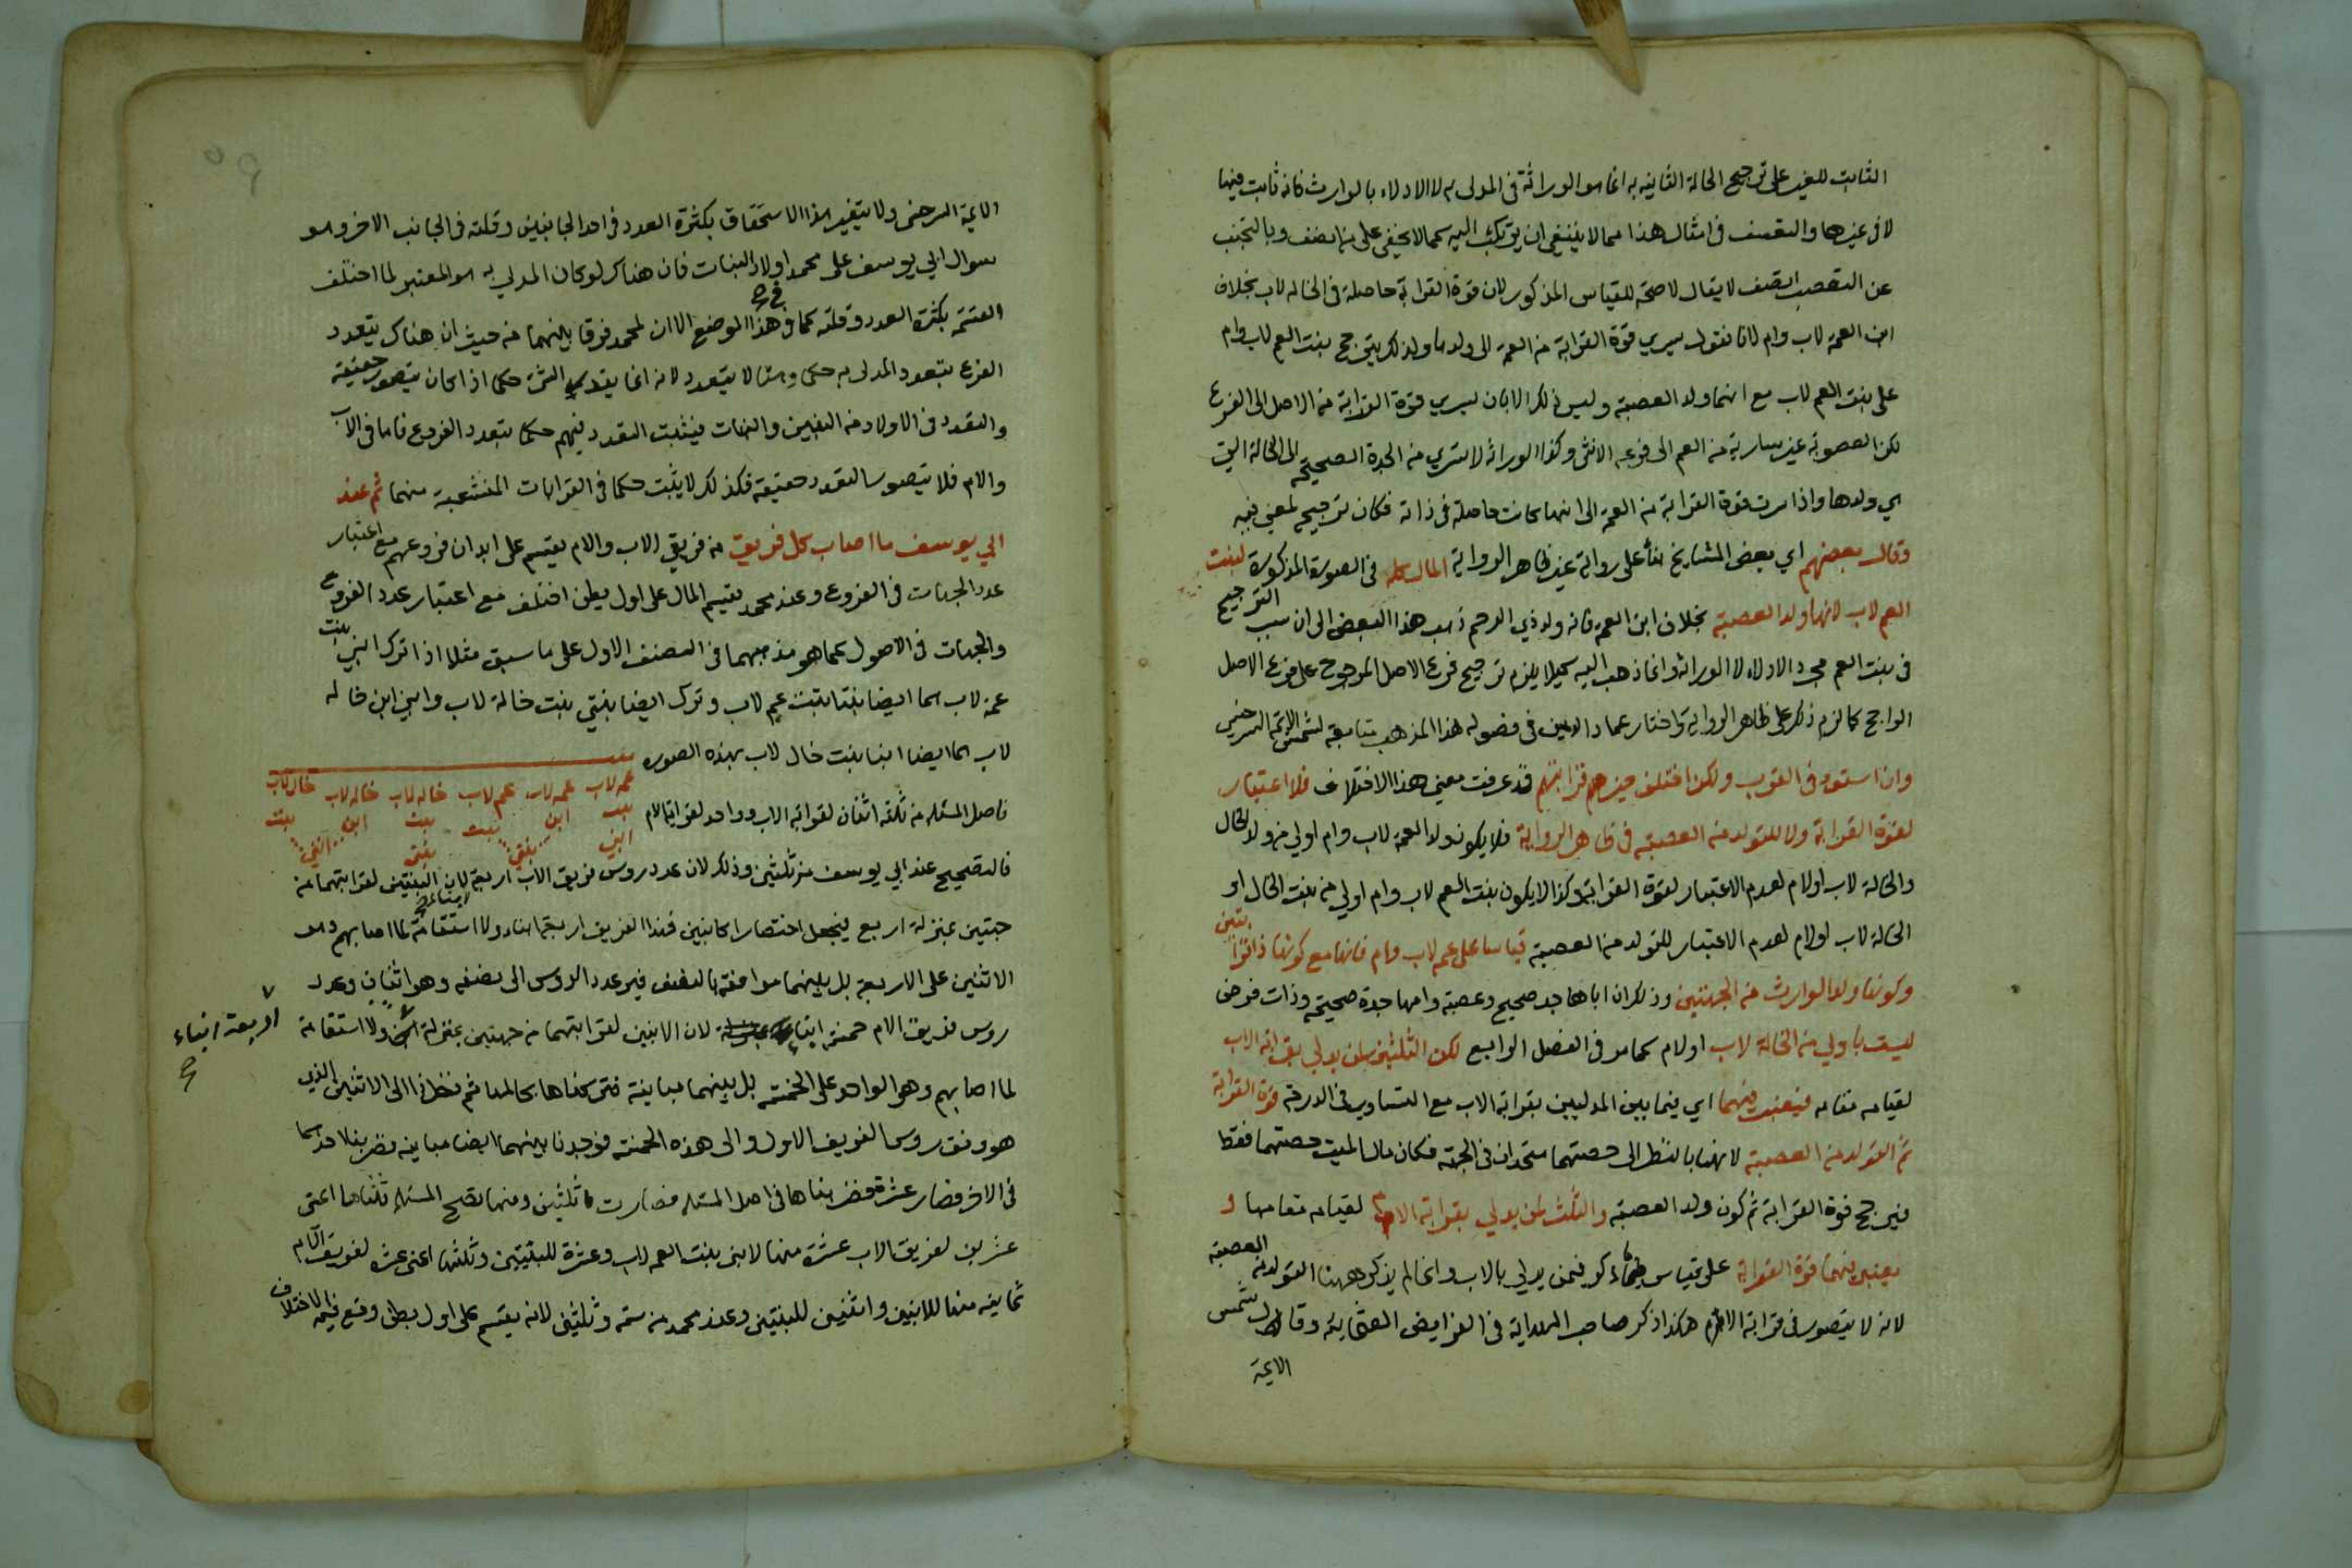 الثابت للغير على ترجيح الحالة الثانية به انما هو الوراثة في المدلى به لا الادلاء بالوارث فانه ثابت فيها
لا في غيرها والتعسف في امثال هذا مما لا ينبغي ان يرتكب اليه كما لا يخفى على من انصف وبالتجنب
عن التعصب اتصف لا يقال لا صحة للقياس المذكور لان قوة القرابة حاصلة في الخالة لاب بخلاف
ابن العمة لاب وام لانا نقول يسري قوة القرابة من العمة الى ولدها ولذلك يترجح بنت العم لاب وام
على بنت العم لاب مع انهما ولد العصبة وليس ذلك الا بان يسري قوة القرابة من الاصل الى الفرع
لكن العصوبة غير سارية من العم الى فرعه الانثى وكذا الوراثة لا تسري من الجدة الصحيحة الى الخالة التي
هي ولدها واذا سرت قوة القرابة من العمة الى ابنها كانت حاصلة في ذاته فكان ترجيح لمعنى فيه
وقال بعضهم اي بعض المشايخ بناء على رواية غير ظاهر الرواية المال كله في الصورة المذكورة لبنت
العم لاب لانها ولد العصبة بخلاف ابن العمة فانه ولد ذي الرحم ذهب هذا البعض الى ان سبب الترجيح
في بنت العم مجرد الادلاء لا الوراثة وانما ذهب اليه كيلا يلزم ترجيح فرع الاصل المرجوح على فرع الاصل
الراجح كما لزم ذلك على ظاهر الرواية واختار عماد الدين في فصوله هذا المذهب متابعة لشمس الائمة السرخسي
وان استووا في القرب ولكن اختلف حيز قرابتهم قد عرفت معنى هذا الاختلاف فلا اعتبار
لقوة القرابة ولا للتولد من العصبة في ظاهر الرواية فلا يكون ولد العمة لاب وام اولى من ولد الخال
والخالة لاب او لام لعدم الاعتبار لقوة القرابة وكذا لا يكون بنت العم لاب وام اولى من بنت الخال او
الخالة لاب او لام لعدم الاعتبار للتولد من العصبة قياسا على عمة لاب وام فانها مع كونها ذات قرابتين
وكونها ولد الوارث من الجهتين وذلك ان اباها جد صحيح وعصبة وامها جدة صحيحة وذات فرض
ليست باولى من الخالة لاب او لام كما مر في الفصل الرابع لكن الثلثين لمن يدلي بقرابة الاب
لقيامه مقامه فيعتبر فيهما اي فيما بين المدليين بقرابة الاب مع التساوي في الدرجة قوة القرابة
ثم التولد من العصبة لانهما بالنظر الى حصتهما متحدان في الجهة فكان مال الميت حصتهما فقط
فيرجح قوة القرابة ثم كون ولد العصبة والثلث لمن يدلي بقرابة الام لقيامه مقامها و
يعتبر فيهما قوة القرابة على قياس ما ذكر فيمن يدلي بالاب وانما لم يذكر ههنا التولد من العصبة
لانه لا يتصور في قرابة الام هكذا ذكر صاحب الهداية في الفرايض العثمانية وقال شمس
الايمة
الايمة السرخسي ولا يتغير هذا الاستحقاق بكثرة العدد في احد الجانبين وقلته في الجانب الاخر وهو
سوال ابي يوسف على محمد اولاد البنات فان هناك لو كان المدلي به هو المعتبر لما اختلف
القسمة بكثرة العدد وقلته كما في هذا الموضع الا ان لمحمد فرقا بينهما من حيث ان هناك يتعدد
الفرع بتعدد المدلى به حكما وههنا لا يتعدد لانه انما يتعدد الشيء حكما اذا كان يتصور حقيقة
والتعدد في الاولاد من البنين والبنات فيثبت التعدد فيهم حكما بتعدد الفروع فاما في الاب
والام فلا يتصور التعدد حقيقة فكذلك لا يثبت حكما في القرابات المنشعبة منهما ثم عند
ابي يوسف ما اصاب كل فريق من فريقي الاب والام يقسم على ابدان فروعهم مع اعتبار
عدد الجهات في الفروع وعند محمد يقسم المال على اول بطن اختلف مع اعتبار عدد الفروع
والجهات في الاصول كما هو مذهبهما في الصنف الاول على ما سبق مثلا اذا ترك ابني بنت
عمة لاب هما ايضا بنتا بنت عم لاب وترك ايضا بنتي بنت خالة لاب وابني ابن خالة
لاب هما ايضا ابنا بنت خال لاب بهذه الصورة
عمه لاب عمه لاب عم لاب خاله لاب خاله لاب خال لاب
بنت ابن بنت بنت ابن بنت
ابني بنتي بنتي ابني
فاصل المسئلة من ثلثة اثنان لقرابة الاب وواحد لقرابة الام
فالتصحيح عند ابي يوسف من ثلثين وذلك لان عدد روس فريق الاب اربعة لان البنتين لقرابتهما من
جهتين بمنزلة اربع فيجعل اختصارا كابنين فهذا الفريق اربعة ابناء ولا استقامة لما اصابهم وهو
الاثنين على الاربعة بل بينهما موافقة بالنصف فيرد عدد الروس الى نصفه وهو اثنان وعدد
روس فريق الام خمسة ابناء لان الابنين لقرابتهما من جهتين بمنزلة ولا استقامة
اربعة ابناء
صح
لما اصابهم وهو الواحد على الخمسة بل بينهما مباينة فتركناها بحالها ثم نظرنا الى الاثنين الذي
هو وفق روس الفريق الاول والى هذه الخمسة فوجدنا بينهما ايضا مباينة فضربنا احدهما
في الاخر فصار عشرة فضربناها في اصل المسئلة فصارت ثلثين ومنها تصح المسئلة ثلثاها اعني
عشرين لفريق الاب عشرة منها لابني بنت العمة لاب وعشرة للبنتين وثلثها اعني عشرة لفريق الام
ثمانية منها للابنين واثنين للبنتين وعند محمد من ستة وثلثين لانه يقسم على اول بطن وقع فيه الاختلاف